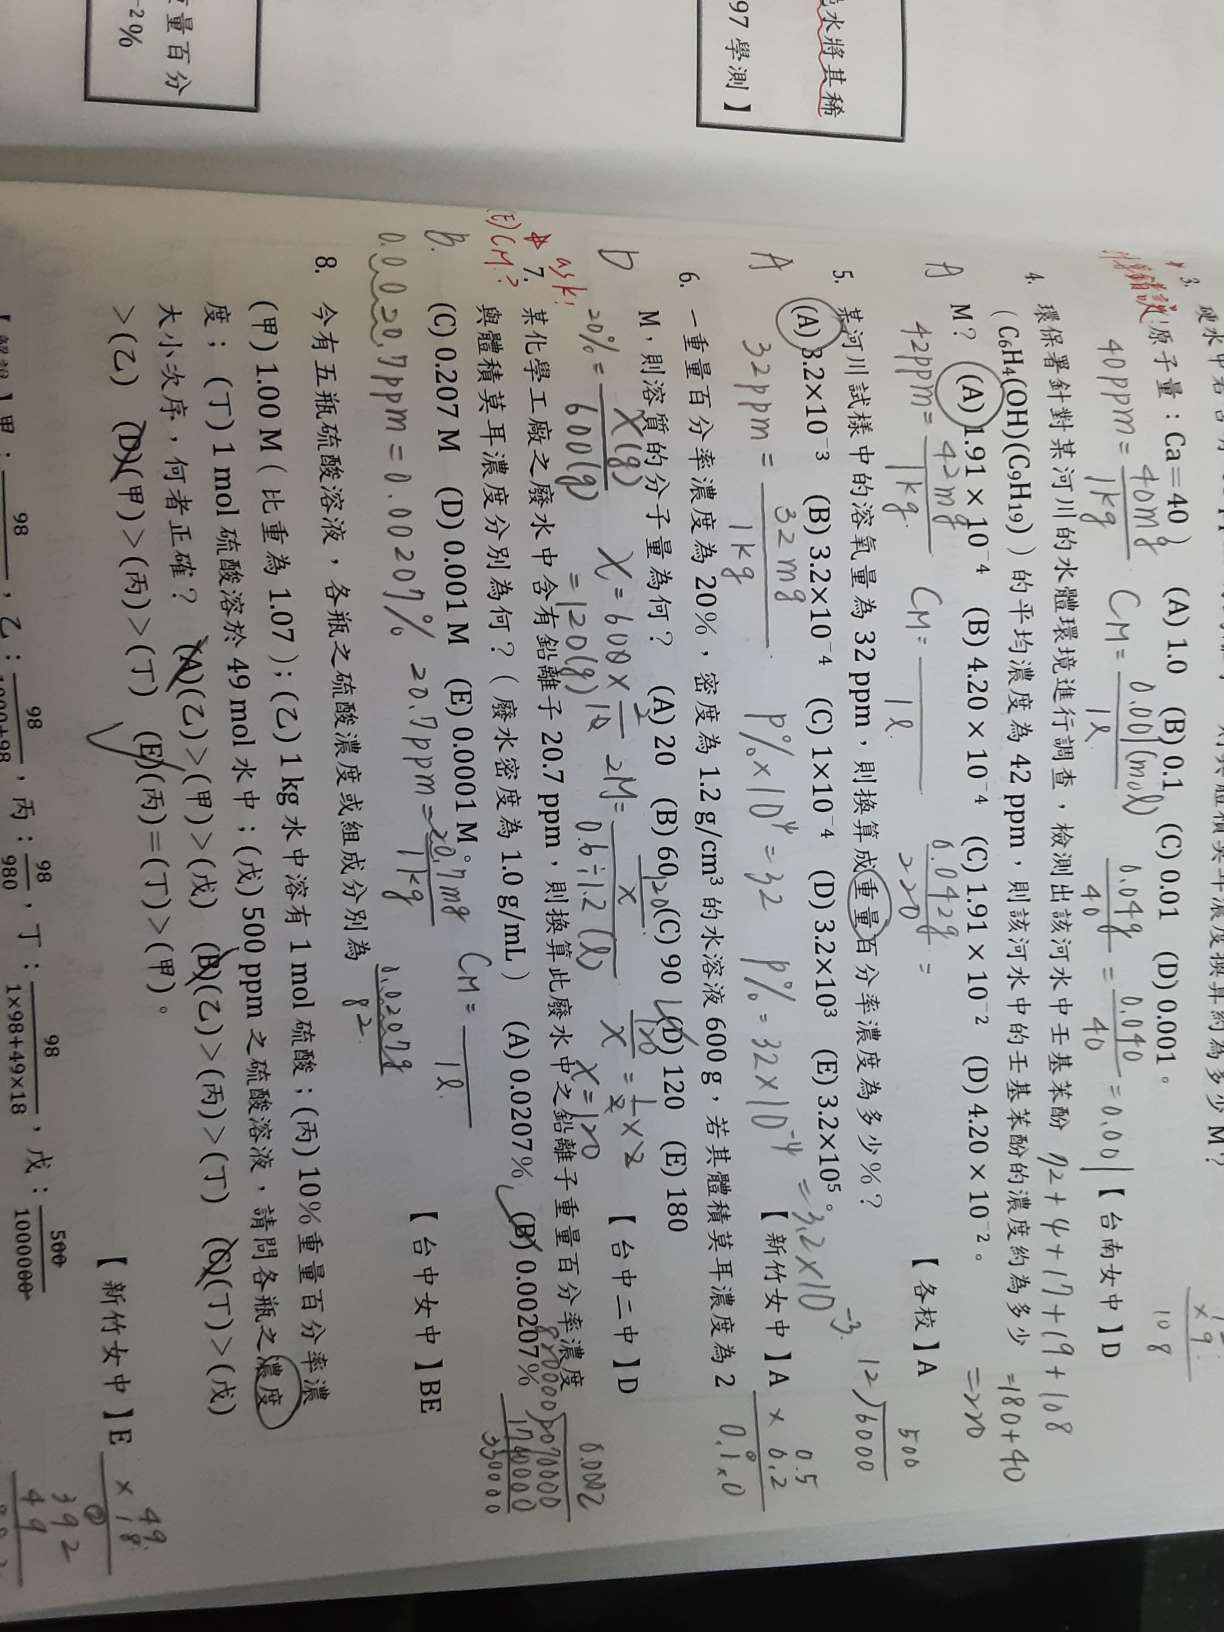 色水將其稀
97 學測】
重量百分
-2%
* 3.
計算錯誤!
原子量：Ca＝40） (A) 1.0 (B) 0.1 (C) 0.01 (D) 0.001。
【台南女中】D
40ppm = 40mg / 1kg
CM = 0.001(mol) / 1l
0.04g / 40 = 0.040 / 40 = 0.001
4. 環保署針對某河川的水體環境進行調查，檢測出該河水中壬基苯酚
（C₆H₄(OH)(C₉H₁₉)）的平均濃度為 42 ppm，則該河水中的壬基苯酚的濃度約為多少
M？ (A) 1.91 × 10⁻⁴ (B) 4.20 × 10⁻⁴ (C) 1.91 × 10⁻² (D) 4.20 × 10⁻²。
【各校】A
72+4+17+19+108
=180+40
=220
A
42ppm = 42mg / 1kg
CM = / 1l
0.042g / 220 =
5. 某河川試樣中的溶氧量為 32 ppm，則換算成重量百分率濃度為多少％？
(A) 3.2×10⁻³ (B) 3.2×10⁻⁴ (C) 1×10⁻⁴ (D) 3.2×10³ (E) 3.2×10⁵。
【新竹女中】A
A
32ppm = 32mg / 1kg
p% × 10⁴ = 32 p% = 32×10⁻⁴ = 3.2×10⁻³
6. 一重量百分率濃度為 20%，密度為 1.2 g/cm³ 的水溶液 600 g，若其體積莫耳濃度為 2
M，則溶質的分子量為何？ (A) 20 (B) 60 (C) 90 (D) 120 (E) 180
【台中二中】D
D
20% = X(g) / 600(g)
= 120(g)
x = 120
* 7. 某化學工廠之廢水中含有鉛離子 20.7 ppm，則換算此廢水中之鉛離子重量百分率濃度
與體積莫耳濃度分別為何？（廢水密度為 1.0 g/mL） (A) 0.0207% (B) 0.00207%
(C) 0.207 M (D) 0.001 M (E) 0.0001 M。
【台中女中】BE
ask!
(E) CM?
B.
0.0020.7ppm = 0.00207%
20.7ppm = 20.7mg / 1kg
CM = / 1l
0.0207g / 82
8. 今有五瓶硫酸溶液，各瓶之硫酸濃度或組成分別為
(甲) 1.00 M（比重為 1.07）；(乙) 1 kg 水中溶有 1 mol 硫酸；(丙) 10% 重量百分率濃
度；(丁) 1 mol 硫酸溶於 49 mol 水中；(戊) 500 ppm 之硫酸溶液，請問各瓶之濃度
大小次序，何者正確？ (A)(乙)＞(甲)＞(戊) (B)(乙)＞(丙)＞(丁) (C)(丁)＞(戊)
＞(乙) (D)(甲)＞(丙)＞(丁) (E)(丙)＝(丁)＞(甲)。
【新竹女中】E
甲： 98 ，乙： 98 / 1000+98 ，丙： 98 / 980 ，丁： 98 / 1×98+49×18 ，戊： 500 / 1000000
108
12)6000
500
0.5
× 0.2
0.0002
49
× 18
392
49